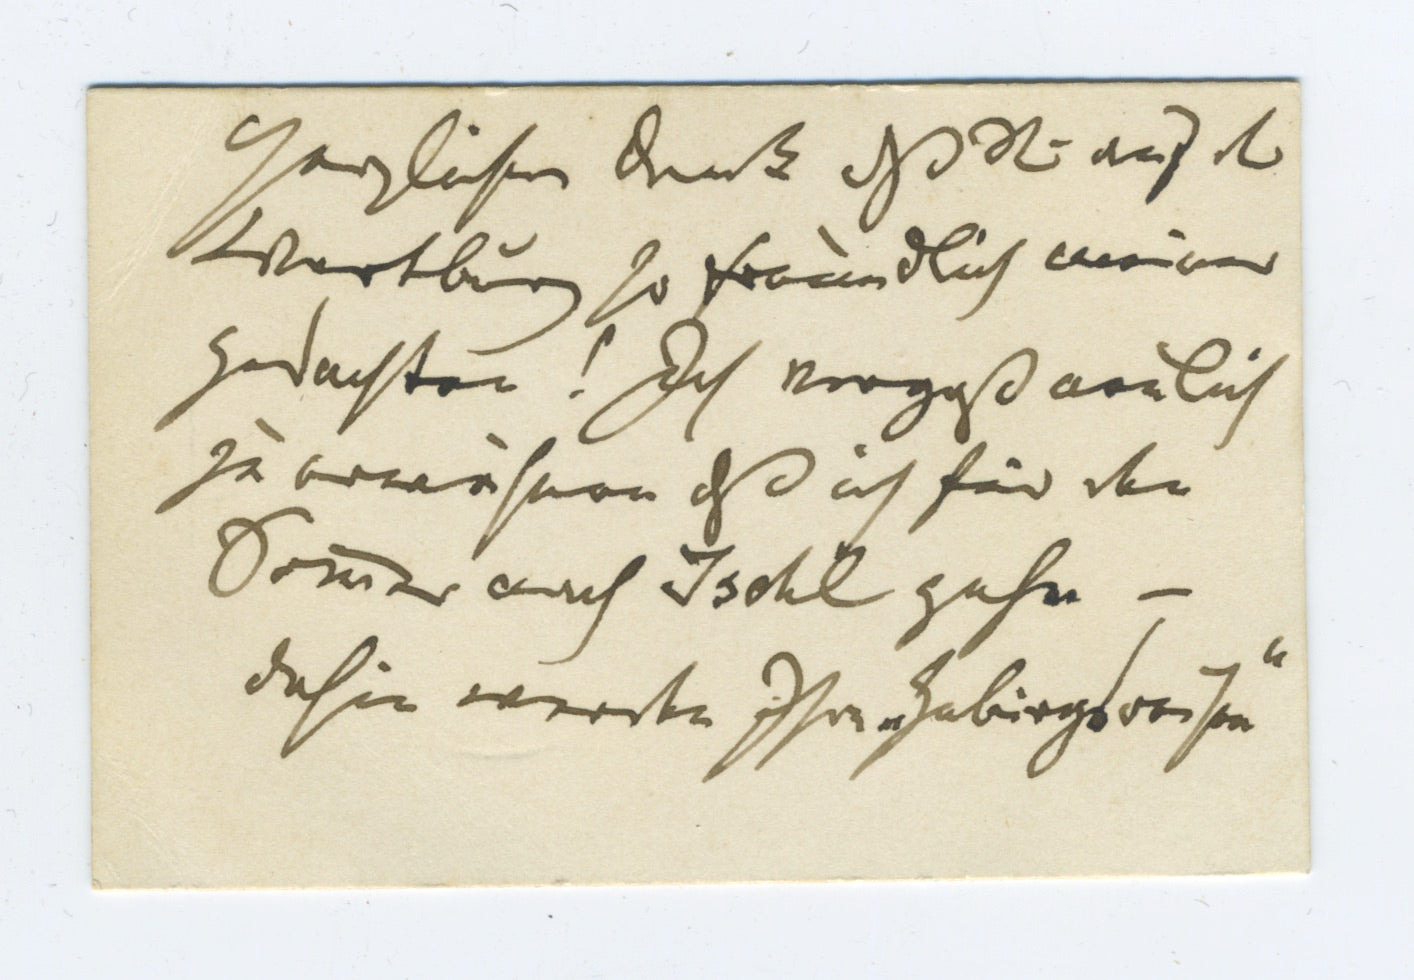 Herzlichen Dank daß Sie auf d.
Wartburg so freundlich meiner
gedachten! Ich vergaß neulich
zu erwähnen daß ich für den
Sommer nach Ischl gehe —
dahin werden Ihre „Gebirgsreisen“